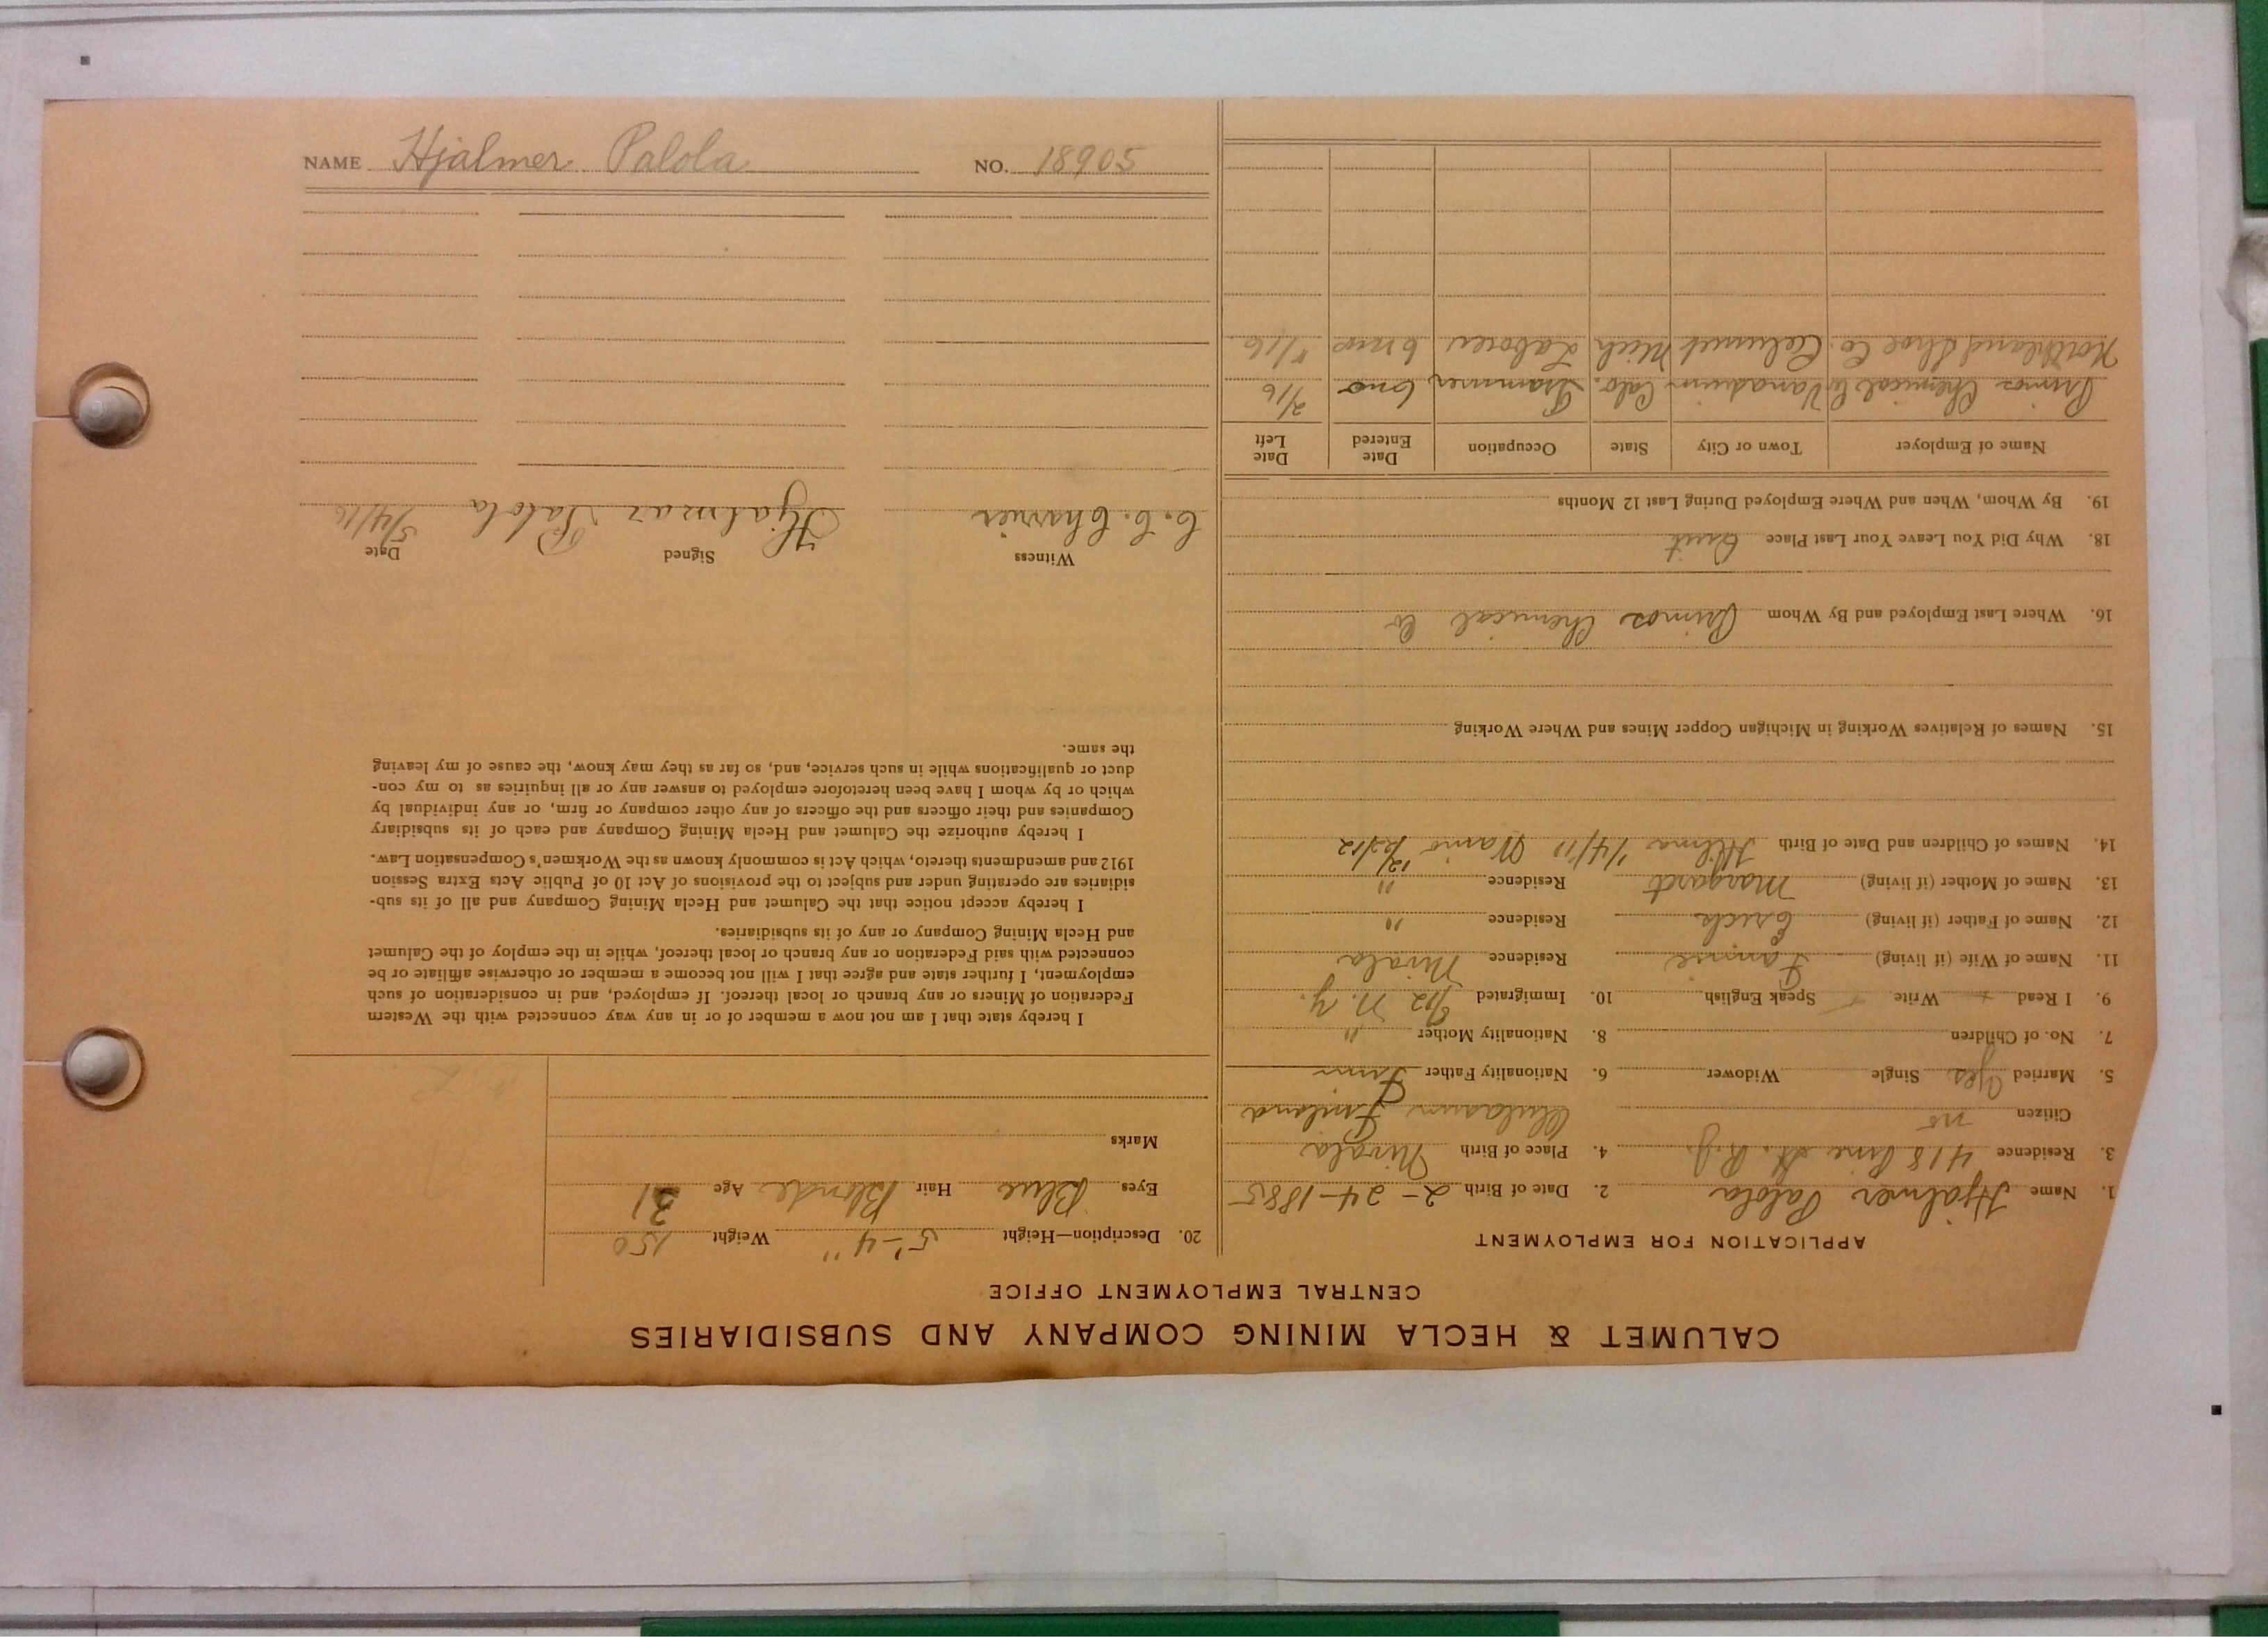 NAME Hjalmer Palola NO. 18905
CALUMET & HECLA MINING COMPANY AND SUBSIDIARIES
CENTRAL EMPLOYMENT OFFICE
APPLICATION FOR EMPLOYMENT
1. Name Hjalmer Palola 2. Date of Birth 2-24-1885
3. Residence 418 Pine St. R.J. 4. Place of Birth Nivala
Citizen no Finland
5. Married Yes Single Widower 6. Nationality Father Finn
7. No. of Children 8. Nationality Mother "
9. I Read Write Speak English 10. Immigrated N.Y.
11. Name of Wife (if living) Residence Nivala
12. Name of Father (if living) Erick Residence "
13. Name of Mother (if living) Margaret Residence "
14. Names of Children and Date of Birth Hilma 1/4/11
15. Names of Relatives Working in Michigan Copper Mines and Where Working
16. Where Last Employed and By Whom Primos Chemical Co
18. Why Did You Leave Your Last Place Quit
19. By Whom, When and Where Employed During Last 12 Months
Name of Employer Town or City State Occupation Date Entered Date Left
Primos Chemical Co Vanadium Colo. Trammer 6 mo 2/16
Northland Shoe Co. Calumet Mich Laborer 6 mos
20. Description—Height 5'-4" Weight 150
Eyes Blue Hair Blonde Age 31
Marks
I hereby state that I am not now a member of or in any way connected with the Western
Federation of Miners or any branch or local thereof. If employed, and in consideration of such
employment, I further state and agree that I will not become a member or otherwise affiliate or be
connected with said Federation or any branch or local thereof, while in the employ of the Calumet
and Hecla Mining Company or any of its subsidiaries.
I hereby accept notice that the Calumet and Hecla Mining Company and all of its sub-
sidiaries are operating under and subject to the provisions of Act 10 of Public Acts Extra Session
1912 and amendments thereto, which Act is commonly known as the Workmen's Compensation Law.
I hereby authorize the Calumet and Hecla Mining Company and each of its subsidiary
Companies and their officers and the officers of any other company or firm, or any individual by
which or by whom I have been heretofore employed to answer any or all inquiries as to my con-
duct or qualifications while in such service, and, so far as they may know, the cause of my leaving
the same.
Witness Signed Date
C. C. Charrier Hjalmar Palola 5/4/16